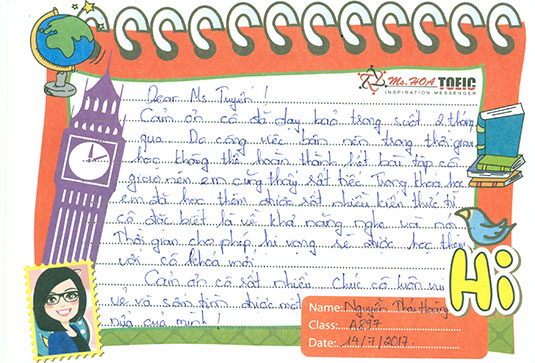 Ms. HOA TOEIC
INSPIRATION MESSENGER
Dear Ms. Tuyền!
Cảm ơn cô đã dạy bảo trong suốt 2 tháng
qua. Do công việc bận nên trong thời gian
học không thể hoàn thành hết bài tập cô
giao nên em cũng thấy rất tiếc. Trong khoá học
em đã học thêm được rất nhiều kiến thức từ
cô đặc biệt là về khả năng nghe và nói
Thời gian cho phép, hi vọng sẽ được học thêm
với cô khoá mới.
Cảm ơn cô rất nhiều. Chúc cô luôn vui
vẻ và sớm tìm được một
nửa của mình!
Hi
Name: Nguyễn Thái Hoàng
Class: A897
Date: 14/7/2017